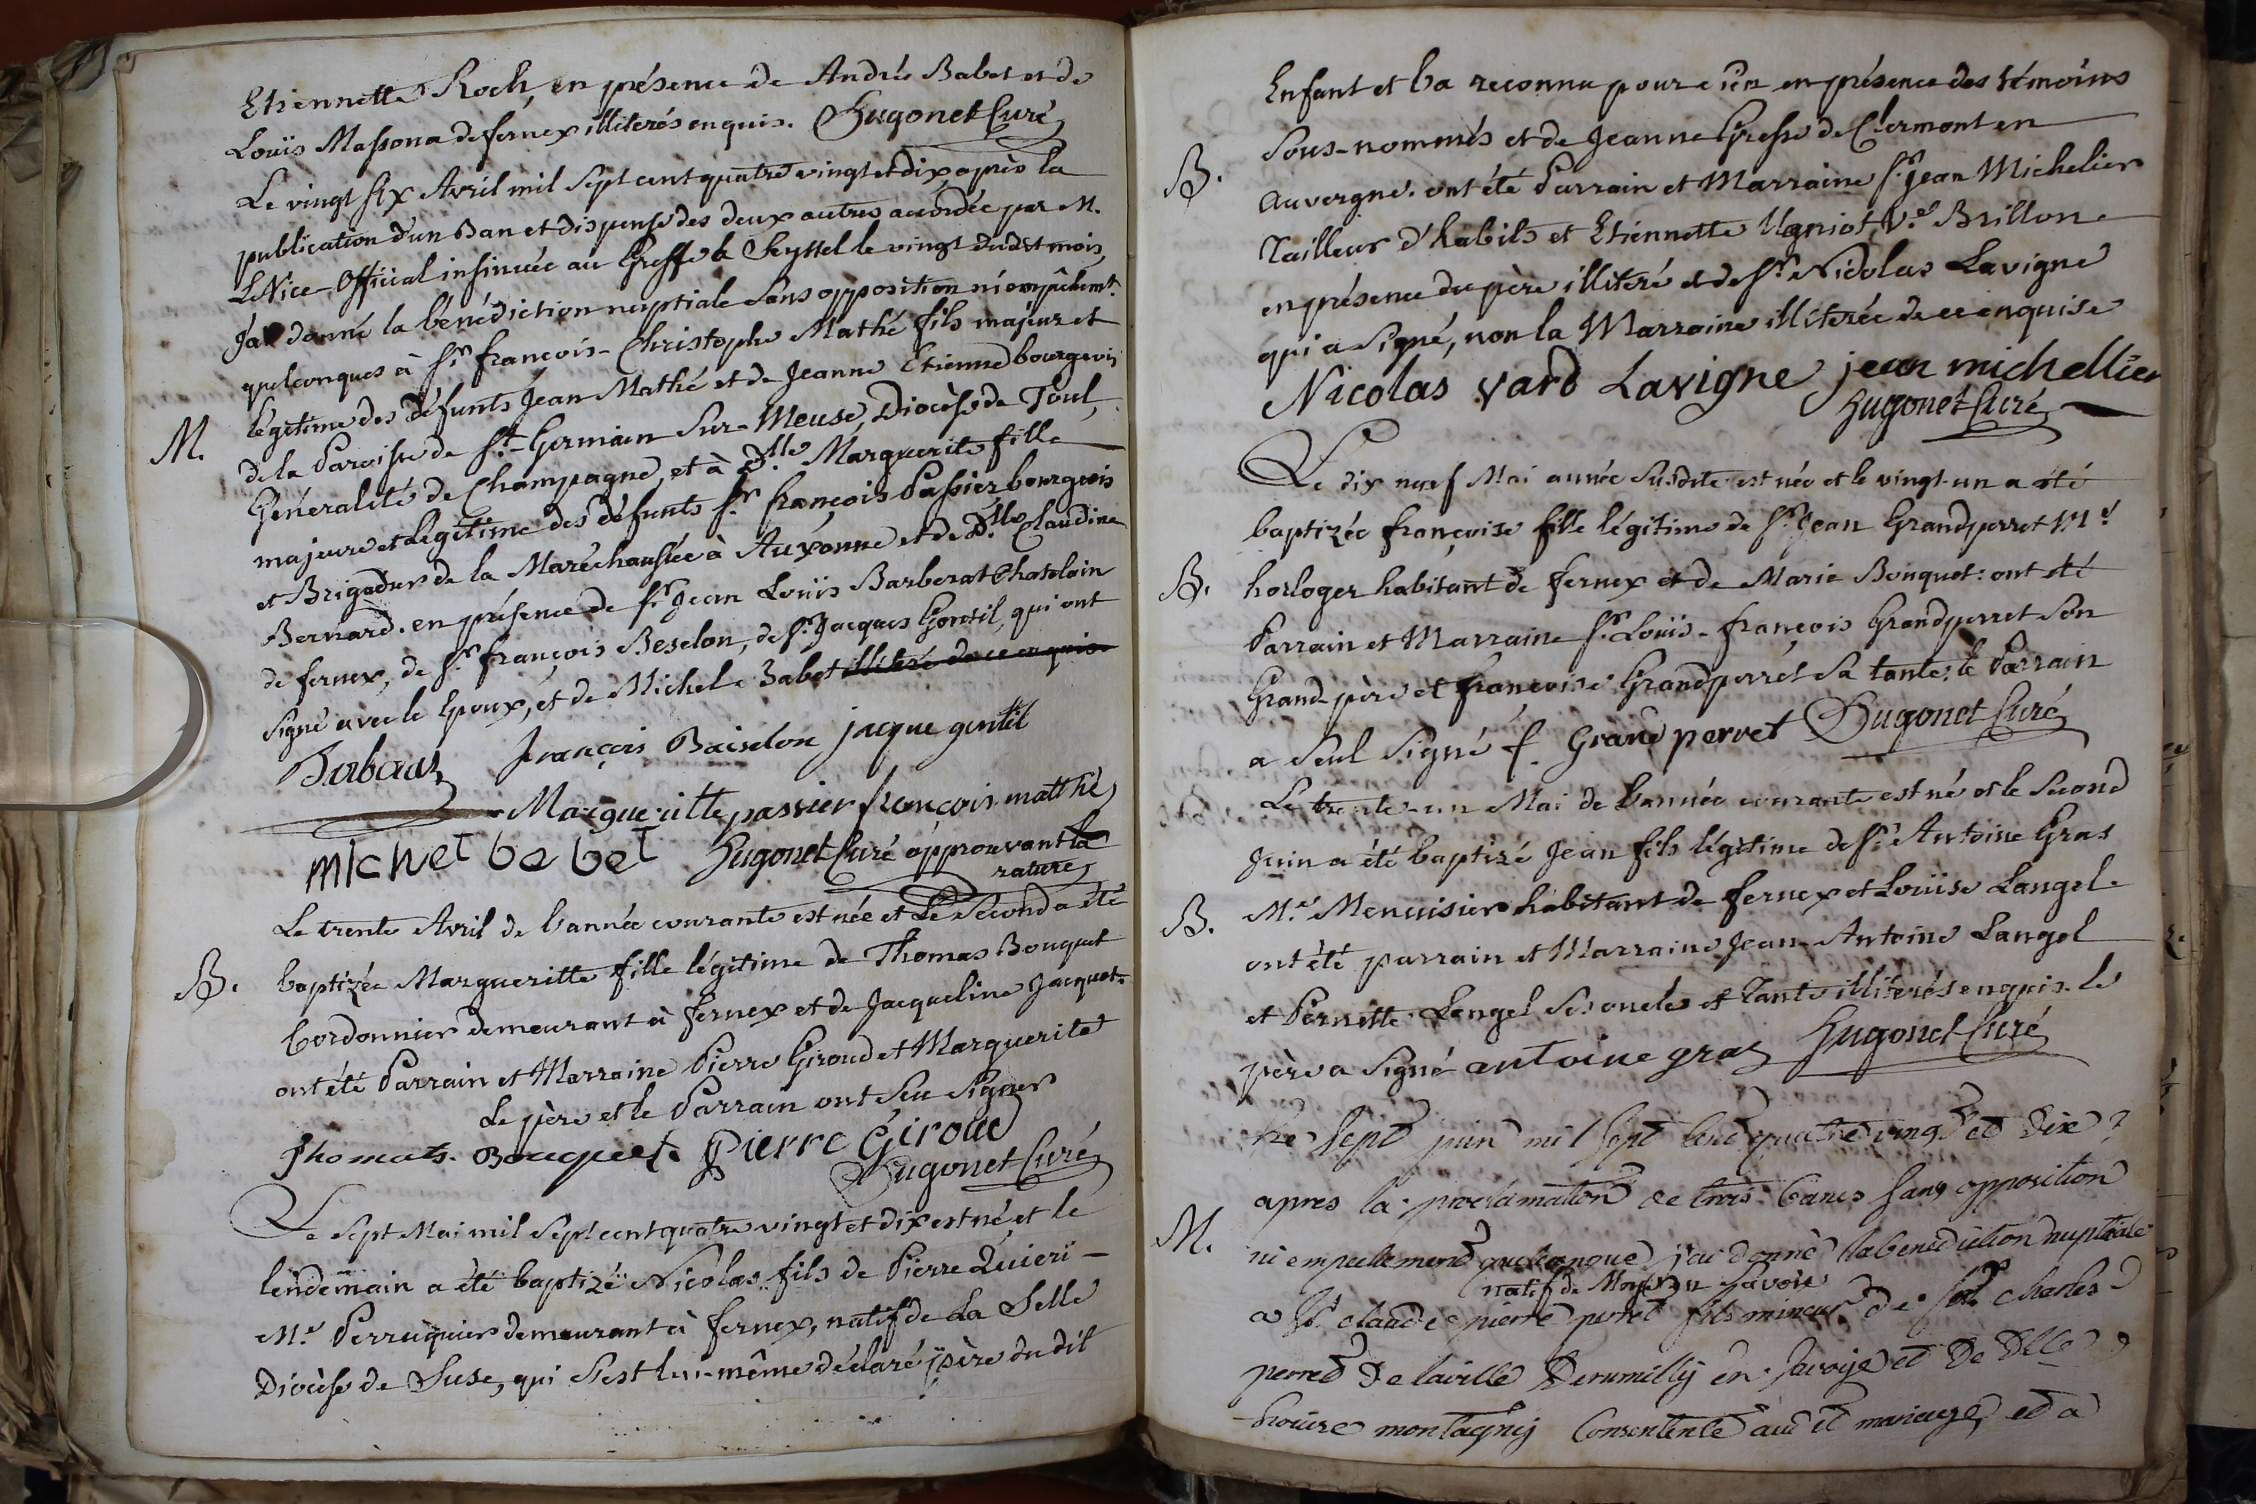 Etiennette Roch, en présence de André Babet et de
Louïs Massona de fernex illiterés enquis. Hugonet Curé
Le vingt six Avril mil sept cent quatre vingt et dix après la
publication d'un Ban et dispense des deux autres accordée par M.
Le Vice-Official insinuée au Greffe de Seyssel le vingt dudit mois,
J'ai donné la bénédiction nuptiale sans opposition ni empêchemt.
quelconques à Sr. françois-Christophe Mathé fils majeur et
légitime des défunts Jean Mathé et de Jeanne Etienne bourgeois
M.
de la Paroisse de St. Germain Sur-Meuse, Diocèse de Toul,
Généralité de Champagne, et à Dlle. Marguerite fille
majeure et Légitime des défunts Sr. françois Passier bourgeois
et Brigadier de la Maréchaussée à Auxonne et de Dlle. Claudine
Bernard. en présence de Sr. Jean Louïs Barberat Chatelain
de fernex, de Sr. françois Beselon, de Sr. Jacques Gentil, qui ont
signé avec le Epoux, et de Michel Babet illiteré de ce enquis
françois Baiselon jacque gentil
Margueritte passier françois matthé
michel babet Hugonet Curé approuvant la
rature
Le trente Avril de l'année courante est née et Le Second a été
B.
baptizée Margueritte fille légitime de Thomas Bouquet
Cordonnier demeurant à fernex et de Jacqueline Jacquet:
ont été Parrain et Marraine Pierre Giroud et Marguerite
Le père et le Parrain ont seu signer
Thomas Bouquet Pierre Giroud
Hugonet Curé
Le Sept Mai mil Sept cent quatre vingt et dix est né, et le
lendemain a été baptizé Nicolas fils de Pierre Quieri-
Me. Perruquier demeurant à fernex, natif de La Selle
Diocèse de Suse, qui s'est lui-même déclaré père du dit
Enfant et l'a reconnu pour sien en présence des témoins
Sous-nommés et de Jeanne Gresse de Clermont en
B.
Auvergne. ont été Parrain et Marraine Sr. Jean Michelier
Tailleur d'habits et Etiennette Ugniot Ve. Brillon
en présence du père illiteré et de Sr. Nicolas Lavigne
qui a signé, non la Marraine illiterée de ce enquise
Nicolas vard Lavigne jean michellier
Hugonet Curé
Le dix neuf Mai année susdite est née et le vingt-un a été
baptizée françoise fille légitime de Sr. Jean Grandperret Me.
B.
horloger habitant de fernex et de Marie Bouquet: ont été
Parrain et Marraine Sr. Louïs-françois Grandperret son
Grand-père et françoise Grandperret sa tante; le Parrain
a seul signé f. Grand perret Hugonet Curé
Le trente-un Mai de l'année courante est né et le Second
Juin a été baptizé Jean fils légitime de Sr. Antoine Gras
B.
Me. Menuisier habitant de fernex et Louïse Langel.
ont été parrain et Marraine Jean-Antoine Langel
et Pernette Langel ses oncle et Tante illiterés enquis. le
père a signé antoine gras Hugonet Curé
Le sept juin mil sept cent quatre vingt et dix
apres la proclamation de trois bancs sans opposition
M.
ni empechement quelconque j'ai donné la benediction nuptiale
natif de en Savoie
a Sr. claude pierre perret fils mineur de Sr. charles
perret de la ville de rumilly en Savoye et de Dlle
montagny Consentente au dit mariage, et a